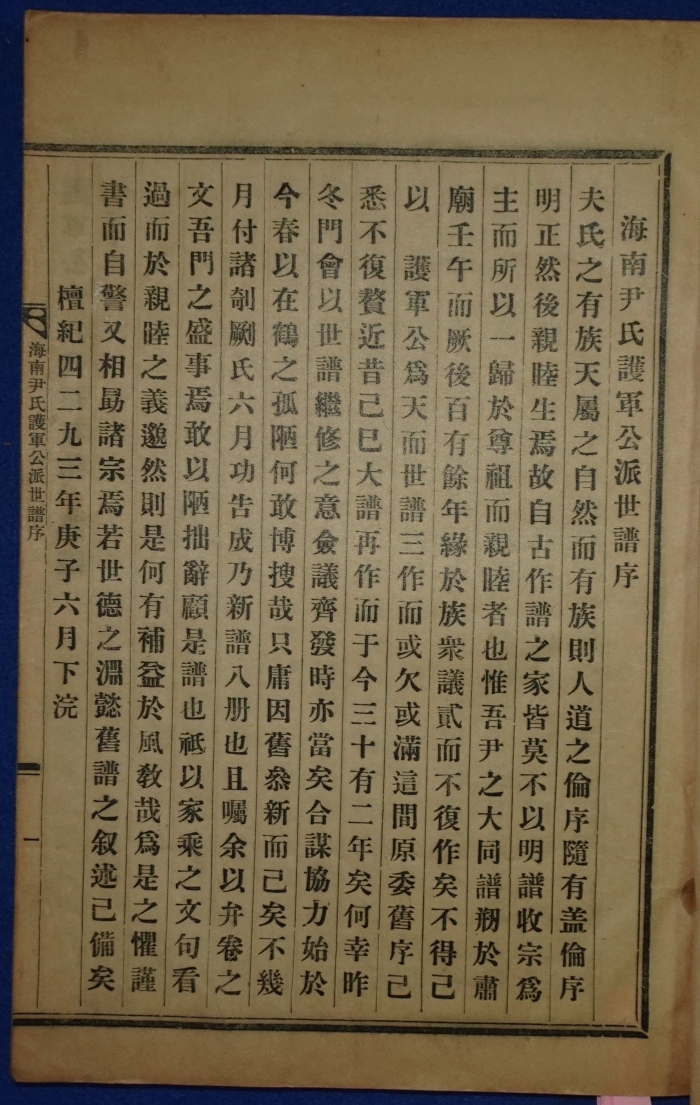 海南尹氏護軍公派世譜序
夫氏之有族天屬之自然而有族則人道之倫序隨有盖倫序
明正然後親睦生焉故自古作譜之家皆莫不以明譜收宗爲
主而所以一歸於尊祖而親睦者也惟吾尹之大同譜刱於肅
廟壬午而厥後百有餘年緣於族衆議貳而不復作矣不得已
以　護軍公爲天而世譜三作而或欠或滿這間原委舊序已
悉不復贅近昔己巳大譜再作而于今三十有二年矣何幸昨
冬門會以世譜繼修之意僉議齊發時亦當矣合謀協力始於
今春以在鶴之孤陋何敢博搜哉只庸因舊叅新而已矣不幾
月付諸剞劂氏六月功告成乃新譜八册也且囑余以弁卷之
文吾門之盛事焉敢以陋拙辭顧是譜也祗以家乘之文句看
過而於親睦之義邈然則是何有補益於風敎哉爲是之懼謹
書而自警又相勗諸宗焉若世德之淵懿舊譜之叙述已備矣
檀紀四二九三年庚子六月下浣
海南尹氏護軍公派世譜序
一